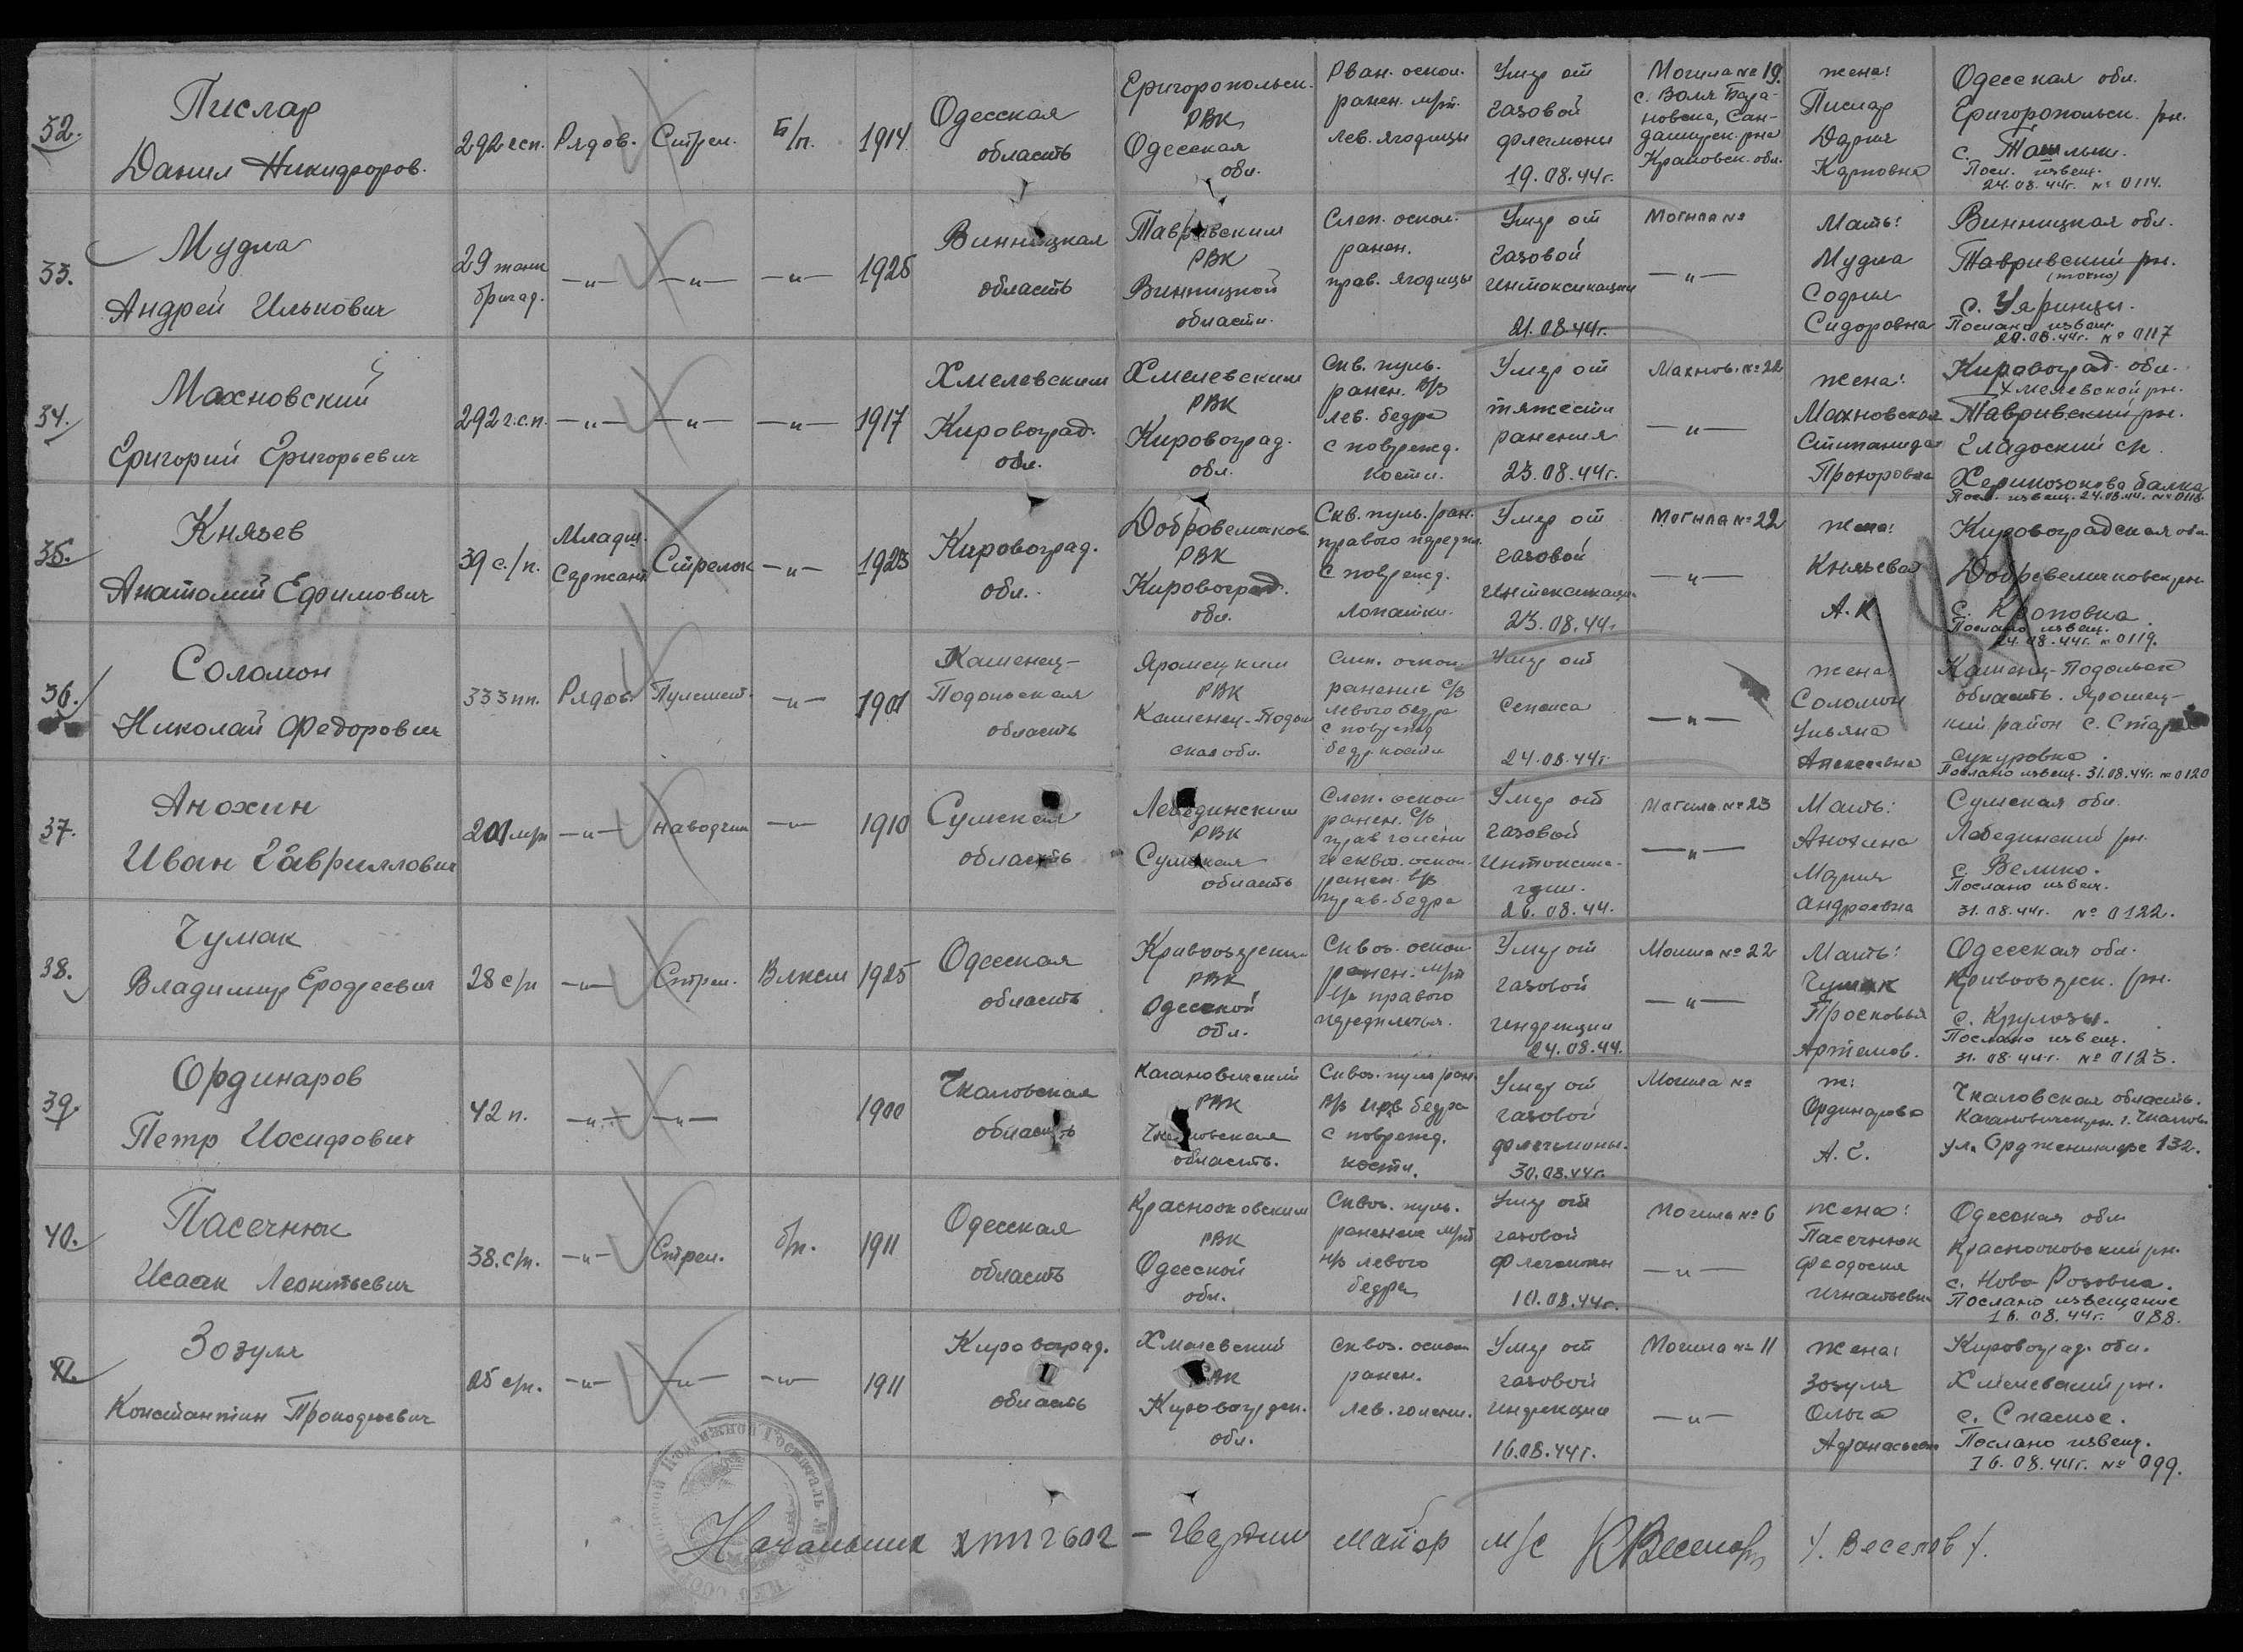 32.
Пислар
Данил Никифоров.
292 гсп.
Рядов.
Стрел.
Б/п.
1914
Одесская
область
Григоропольск.
РВК
Одесская
обл.
Рван. оскол.
ранен. м/т.
лев. ягодицы
Умер от
газовой
флегмоны
19.08.44г.
Могила № 19.
с. Воля Бара-
новска, Сан-
домирск. р-на
Краковск. обл.
жена:
Пислар
Дария
Карповна
Одесская обл.
Григоропольск. рн.
с. Ташлык.
Посл. извещ.
24.08.44г. № 0114.
33.
Мудла
Андрей Илькович
29 танк
бригад.
—"—
—"—
—"—
1925
Винницкая
область
Тавривским
РВК
Винницкой
области.
Слеп. оскол.
ранен.
прав. ягодицы
Умер от
газовой
интоксикации
21.08.44г.
Могила №
—"—
Мать:
Мудла
София
Сидоровна
Винницкая обл.
Тавривский рн.
(точно)
с. Уяринцы.
Послано извещ.
29.08.44г. № 0117
34.
Махновский
Григорий Григорьевич
292 г.с.п.
—"—
—"—
—"—
1917
Хмелевским
Кировоград.
обл.
Хмелевским
РВК
Кировоград.
обл.
Скв. пуль.
ранен. в/з
лев. бедра
с поврежд.
кости.
Умер от
тяжести
ранения
23.08.44г.
Махнов. № 22
—"—
жена:
Махновская
Стипанида
Прохоровна
Кировоград. обл.
Хмелевской рн.
Тавривский рн.
Гладоский с/с
балка
Посл. извещ. 24.08.44. № 0118.
35.
Князев
Анатолий Ефимович
39 с/п.
Младш.
Сержант
Стрелок
—"—
1923
Кировоград.
обл.
Добровеличков.
РВК
Кировоград.
обл.
Скв. пуль. ран.
правого предпл.
с поврежд.
лопатки.
Умер от
газовой
интоксикации
23.08.44г.
Могила № 22
—"—
жена:
Князева
А. К.
Кировоградская обл.
Добровеличковск. рн.
с.
Послано извещ.
24.08.44г. № 0119.
36.
Соломон
Николай Федорович
333 пп.
Рядов.
Пулемет.
—"—
1901
Каменец-
Подольская
область
Яромецким
РВК
Каменец-Подол
ская обл.
Слеп. оскол.
ранение с/з
левого бедра
с поврежд
бедр кости
Умер от
Сепсиса
24.08.44г.
—"—
жена:
Соломон
Ульяна
Алексеевна
Каменец-Подольск
область. Яромец-
кий район с. Стара
Сукуровка.
Послано извещ. 31.08.44г. № 0120
37.
Анохин
Иван Гавриллович
201 м/п
—"—
наводчик
—"—
1910
Сумская
область
Лебединским
РВК
Сумская
область
Слеп. оскол
ранен. с/з
прав голени
и сквоз. оскол.
ранен. в/з
прав. бедра
Умер от
газовой
интоксика-
ции.
26.08.44.
Могила № 23
—"—
Мать:
Анохина
Мария
Андреевна
Сумская обл.
Лебединский рн.
с. Велико.
Послано извещ.
31.08.44г. № 0122.
38.
Чумак
Владимир Ерофеевич
28 с/п
—"—
Стрел.
Влксм
1925
Одесская
область
Кривоозерским
РВК
Одесской
обл.
Сквоз. оскол.
ранен. м/т
в/з правого
предплечья.
Умер от
газовой
инфекции
24.08.44.
Могила № 22
—"—
Мать:
Чумак
Просковья
Артемов.
Одесская обл.
Кривоозерск. рн.
с. Крулозы.
Послано извещ.
31.08.44г. № 0123.
39.
Ординаров
Петр Иосифович
42 п.
—"—
—"—
1900
Чкаловская
область
Кагановичский
РВК
Чкаловская
область.
Сквоз. пуля ран.
в/з прв бедра
с поврежд.
кости.
Умер от
газовой
флегмоны.
30.08.44г.
Могила №
ж:
Ординарова
А. С.
Чкаловская область.
Кагановичск. рн. г. Чкалов.
ул. Орджоникидзе 132.
40.
Пасечнюк
Исаак Леонтьевич
38. с/п.
—"—
Стрел.
б/п.
1911
Одесская
область
Красноокновским
РВК
Одесской
обл.
Сквоз. пуль.
ранение м/т
н/з левого
бедра
Умер от
газовой
флегмоны
10.08.44г.
Могила № 6
—"—
жена:
Пасечнюк
Феодосия
Игнатьевна
Одесская обл
Красноокновский рн.
с. Ново Розовка.
Послано извещение
16.08.44г. 088.
41.
Зозуля
Константин Прокофьевич
25 с/п.
—"—
—"—
—"—
1911
Кировоград.
область
Хмелевский
РВК
Кировоград.
обл.
Сквоз. оскол
ранен.
лев. голени.
Умер от
газовой
инфекции
16.08.44г.
Могила № 11
—"—
Жена:
Зозуля
Ольга
Афанасьевн
Кировоград. обл.
Хмелевский рн.
с. Спаское.
Послано извещ.
16.08.44г. № 099.
Начальник ХППГ 2602 - Гвардии майор м/с /. Веселов /.